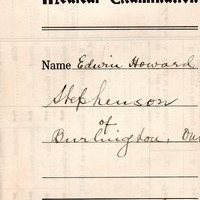 Medical Examination
Name Edwin Howard
Stephenson
of
Burlington,